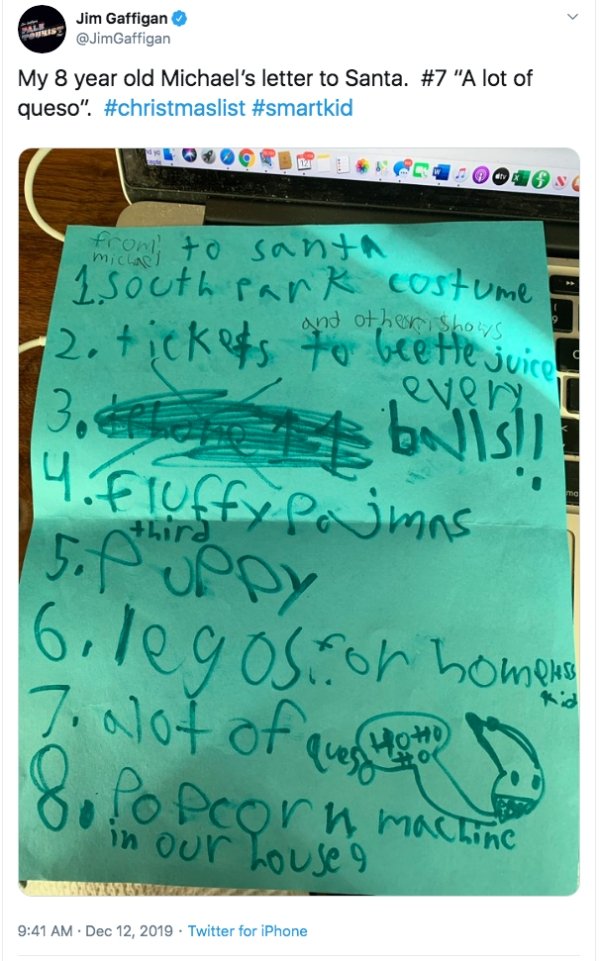 Jim Gaffigan
@JimGaffigan
My 8 year old Michael's letter to Santa. #7 "A lot of
queso". #christmaslist #smartkid
from: to santa
michael
1. South park costume
and other shows
2. tickets to beetle juice
every
3. iphone 11 balls!!
4. fluffy Pajmas
third
5. PUPPY
6. legos: for homeless
kid
7. alot of queso
HO HO
HO
8. Popcorn machine
in our house
9:41 AM · Dec 12, 2019 · Twitter for iPhone